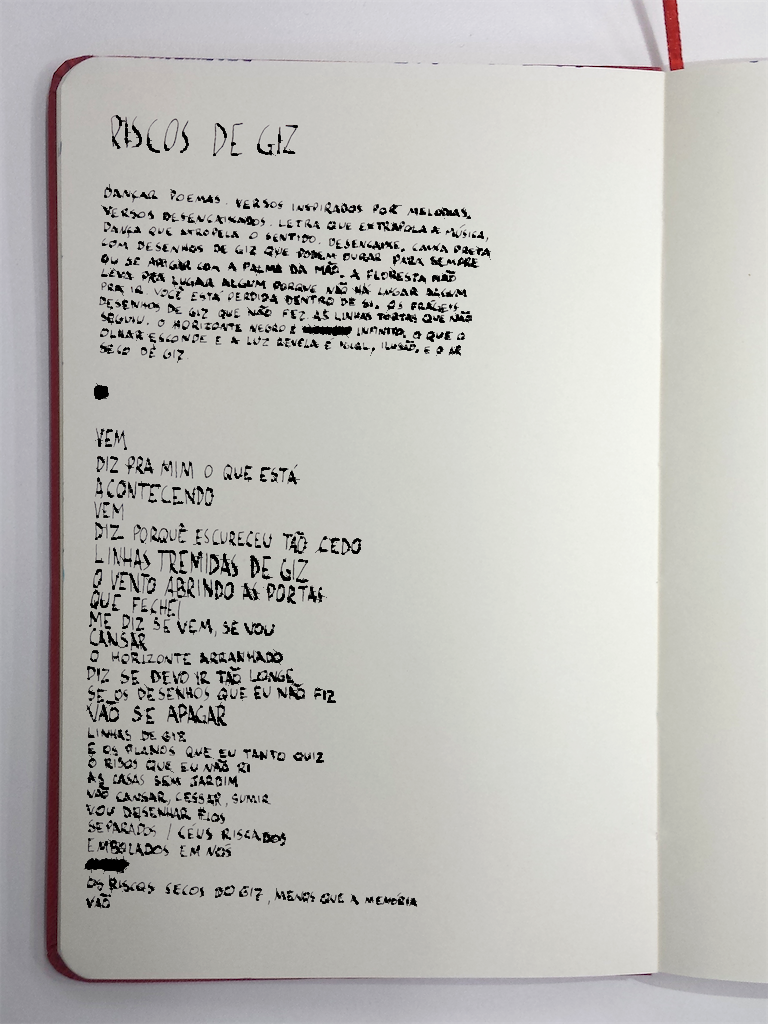 RISCOS DE GIZ
DANÇAR POEMAS. VERSOS INSPIRADOS POR MELODIAS.
VERSOS DESENCAIXADOS. LETRA QUE EXTRAPOLA A MÚSICA,
DANÇA QUE ATROPELA O SENTIDO. DESENCAIXE, CAIXA PRETA
COM DESENHOS DE GIZ QUE PODEM DURAR PARA SEMPRE
OU SE APAGAR COM A PALMA DA MÃO. A FLORESTA NÃO
LEVA PRA LUGAR ALGUM PORQUE NÃO HÁ LUGAR ALGUM
PRA IR. VOCÊ ESTÁ PERDIDA DENTRO DE SI. OS FRÁGEIS
DESENHOS DE GIZ QUE NÃO FEZ AS LINHAS TORTAS QUE NÃO
SEGUIU. O HORIZONTE NEGRO É INFINITO. O QUE O
OLHAR ESCONDE E A LUZ REVELA É IGUAL, ILUSÃO. E O AR
SECO DE GIZ
VEM
DIZ PRA MIM O QUE ESTÁ
ACONTECENDO
VEM
DIZ PORQUÊ ESCURECEU TÃO CEDO
LINHAS TREMIDAS DE GIZ
O VENTO ABRINDO AS PORTAS
QUE FECHEI
ME DIZ SE VEM, SE VOU
CANSAR
O HORIZONTE ARRANHADO
DIZ SE DEVO IR TÃO LONGE
SE OS DESENHOS QUE EU NÃO FIZ
VÃO SE APAGAR
LINHAS DE GIZ
E OS PLANOS QUE EU TANTO QUIZ
O RISOS QUE EU NÃO RI
AS CASAS SEM JARDIM
VÃO CANSAR, CESSAR, SUMIR
VOU DESENHAR FIOS
SEPARADOS / CÉUS RISCADOS
EMBOLADOS EM NÓS
OS RISCOS SECOS DO GIZ, MENOS QUE A MEMÓRIA
VÃO